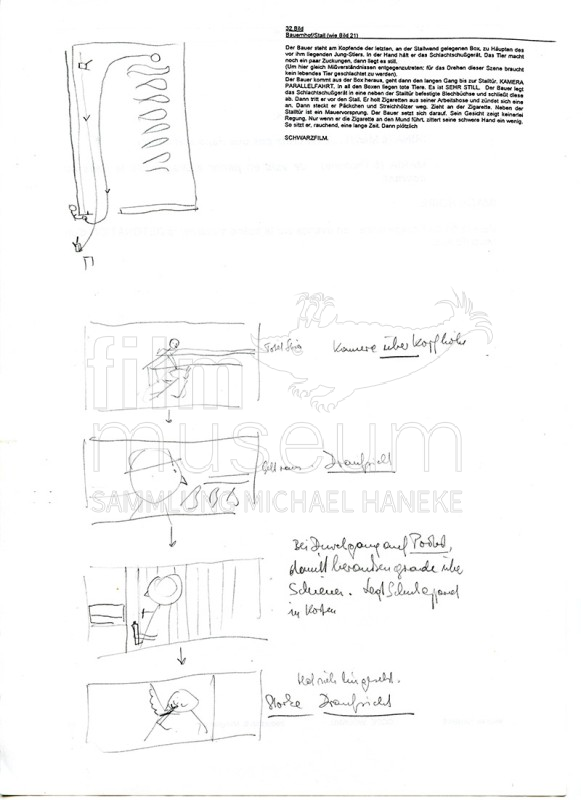 32.Bild
Bauernhof/Stall (wie Bild 21)
Der Bauer steht am Kopfende der letzten, an der Stallwand gelegenen Box, zu Häupten des
vor ihm liegenden Jung-Stiers. In der Hand hält er das Schlachtschußgerät. Das Tier macht
noch ein paar Zuckungen, dann liegt es still.
(Um hier gleich Mißverständnissen entgegenzutreten: für das Drehen dieser Szene braucht
kein lebendes Tier geschlachtet zu werden).
Der Bauer kommt aus der Box heraus, geht dann den langen Gang bis zur Stalltür. KAMERA
PARALLELFAHRT. In all den Boxen liegen tote Tiere. Es ist SEHR STILL. Der Bauer legt
das Schlachtschußgerät in eine neben der Stalltür befestigte Blechbüchse und schließt diese
ab. Dann tritt er vor den Stall. Er holt Zigaretten aus seiner Arbeitshose und zündet sich eine
an. Dann steckt er Päckchen und Streichhölzer weg. Zieht an der Zigarette. Neben der
Stalltür ist ein Mauervorsprung. Der Bauer setzt sich darauf. Sein Gesicht zeigt keinerlei
Regung. Nur wenn er die Zigarette an den Mund führt, zittert seine schwere Hand ein wenig.
So sitzt er, rauchend, eine lange Zeit. Dann plötzlich
SCHWARZFILM.
Kamera über Kopfhöhe
film
museum
Draufsicht
SAMMLUNG MICHAEL HANEKE
Bei Durchgang auf Podest,
damit herauden gerade über
Schienen. Legt Schußapparat
in Kasten
Hat sich hingesetzt.
Starke Draufsicht